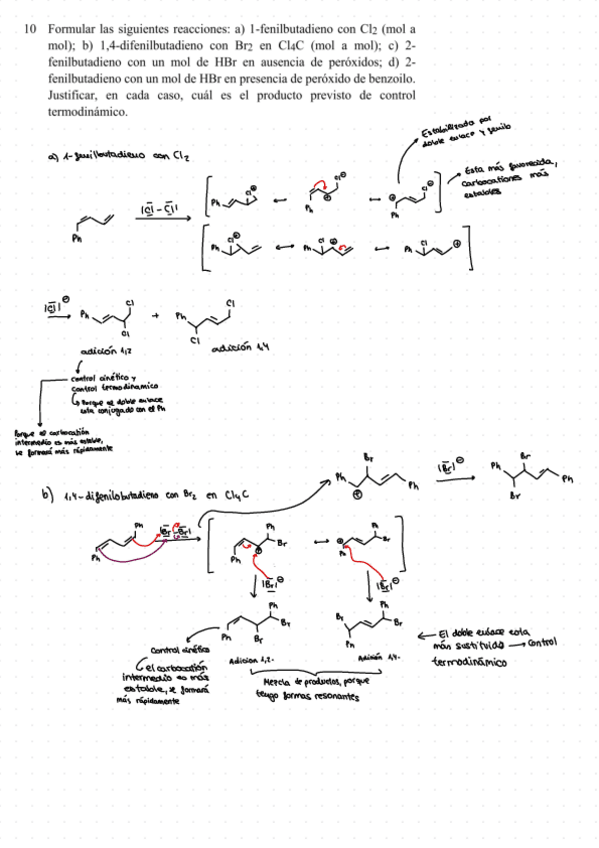 10 Formular las siguientes reacciones: a) 1-fenilbutadieno con Cl2 (mol a
mol); b) 1,4-difenilbutadieno con Br2 en Cl4C (mol a mol); c) 2-
fenilbutadieno con un mol de HBr en ausencia de peróxidos; d) 2-
fenilbutadieno con un mol de HBr en presencia de peróxido de benzoilo.
Justificar, en cada caso, cuál es el producto previsto de control
termodinámico.
Estabilizada por
doble enlace y fenilo
a) 1-fenilbutadieno con Cl2
Esta más favorecida,
carbocationes más
estables
Ph
|Cl-Cl|
Ph
Cl
⊕
Ph
Cl
⊕
Ph
Cl
⊕
Ph
Cl
⊕
Ph
Cl
⊕
Ph
Cl
⊕
|Cl|⊖
Ph
Cl
Cl
+
Ph
Cl
Cl
adición 1,2
adición 1,4
control cinético y
control termodinamico
Porque el doble enlace
esta conjugado con el Ph
Porque el carbocatión
intermedio es más estable,
se formará más rápidamente
b) 1,4-difenilobutadieno con Br2 en Cl4C
Ph
Br
⊕
Ph
|Br|⊖
Ph
Br
Br
Ph
Ph
Ph
|Br-Br|
Ph
Ph
Br
⊕
Ph
Ph
Br
⊕
|Br|⊖
|Br|⊖
Ph
Ph
Br
Br
Ph
Br
Ph
Br
Control cinético
el carbocatión
intermedio es más
estable, se formará
más rápidamente
Adicion 1,2.
Adición 1,4.
Mezcla de productos, porque
tengo formas resonantes
El doble enlace esta
más sustituido → Control
termodinámico